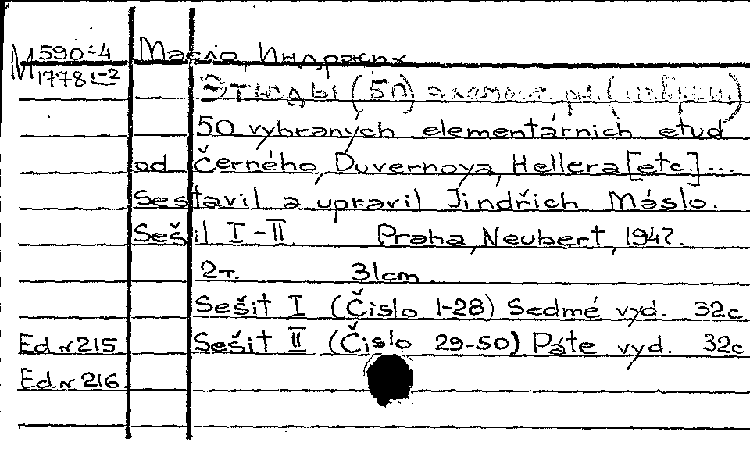 М 590-4 Масло, Индржих
1778 1-2
Этюды (50) элемент. др. (избран.)
50 vybraných elementárních etud
od Černého, Duvernoya, Hellera [etc] ...
Sestavil a upravil Jindřich Máslo.
Sešit I-II Praha, Neubert, 1947.
2т. 31cm.
Sešit I (Čislo 1-28) Sedmé vyd. 32c
Ed. nr 215 Sešit II (Čislo 29-50) Páte vyd. 32c
Ed. nr 216